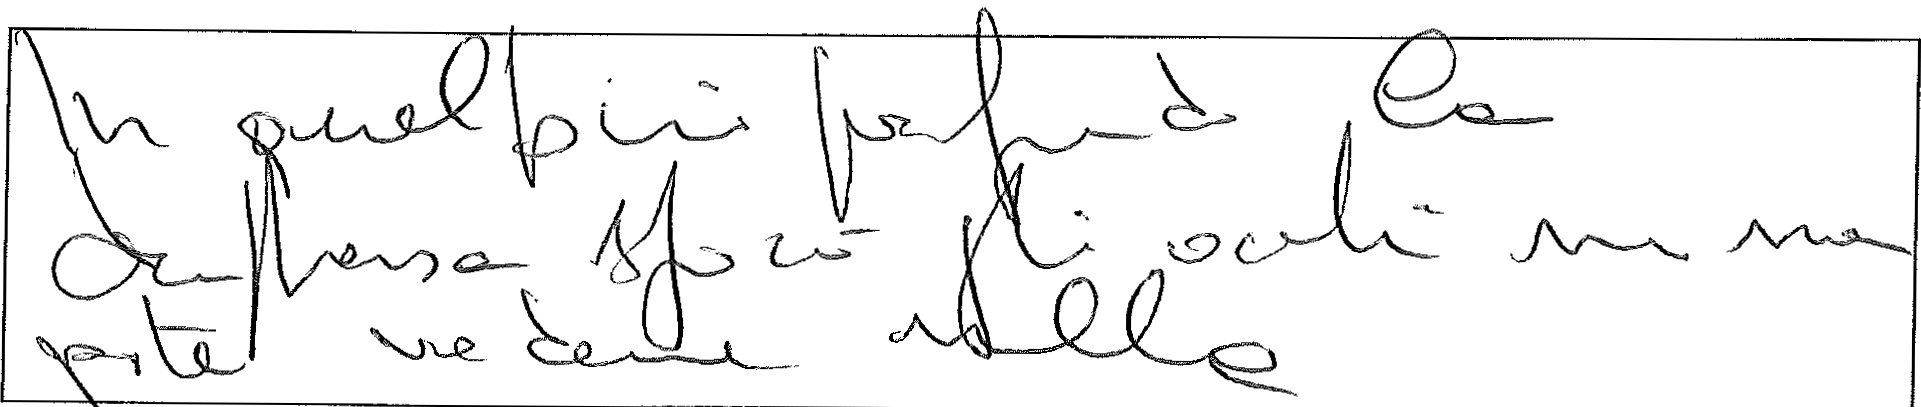 In quel più profondo la
dispensa sforzò gli occhi ma non
poté vedere nulla